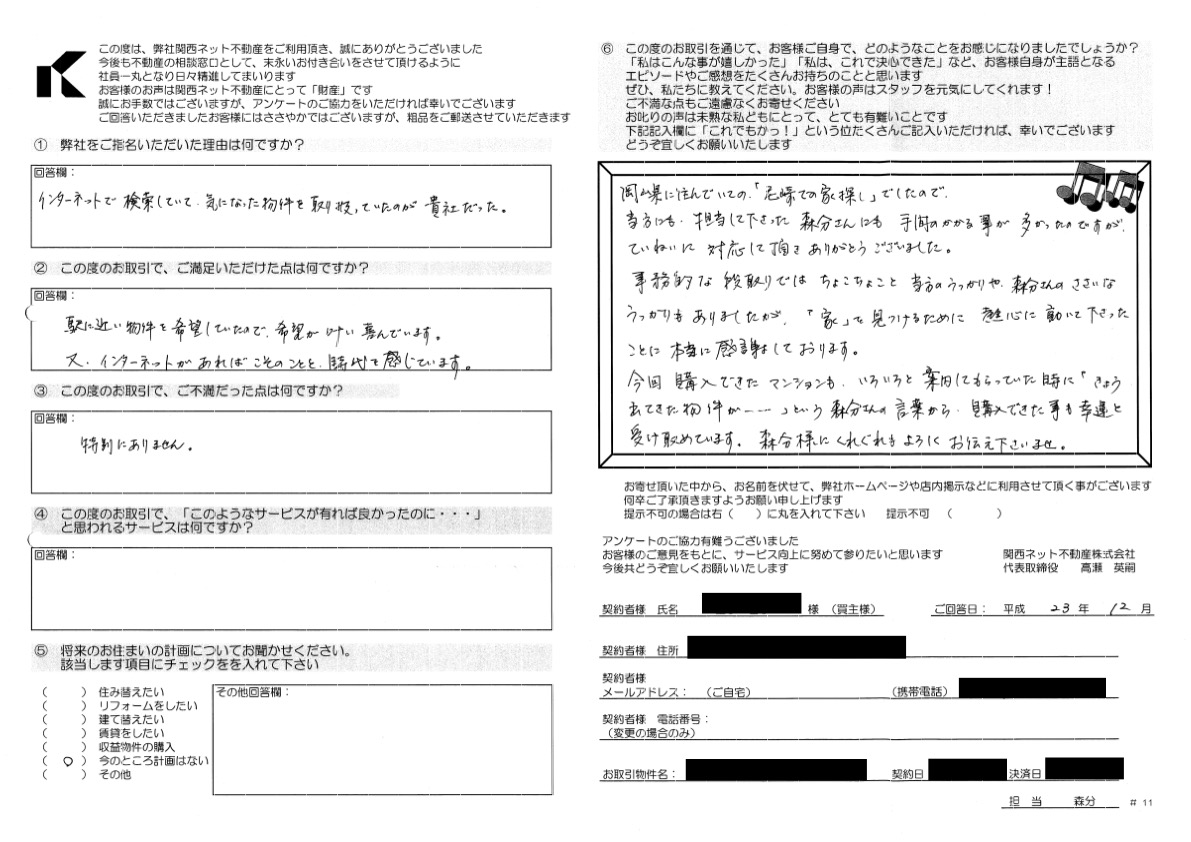 この度は、弊社関西ネット不動産をご利用頂き、誠にありがとうございました
今後も不動産の相談窓口として、末永いお付き合いをさせて頂けるように
社員一丸となり日々精進してまいります
お客様のお声は関西ネット不動産にとって「財産」です
誠にお手数ではございますが、アンケートのご協力をいただければ幸いでございます
ご回答いただきましたお客様にはささやかではございますが、粗品をご郵送させていただきます
① 弊社をご指名いただいた理由は何ですか?
回答欄:
インターネットで検索していて、気になった物件を取り扱っていたのが貴社だった。
② この度のお取引で、ご満足いただけた点は何ですか?
回答欄:
駅に近い物件を希望していたので、希望が叶い喜んでいます。
又、インターネットがあればこそのことと、時代を感じています。
③ この度のお取引で、ご不満だった点は何ですか?
回答欄:
特別にありません。
④ この度のお取引で、「このようなサービスが有れば良かったのに・・・」
と思われるサービスは何ですか?
回答欄:
⑤ 将来のお住まいの計画についてお聞かせください。
該当します項目にチェックをを入れて下さい
( ) 住み替えたい
( ) リフォームをしたい
( ) 建て替えたい
( ) 賃貸をしたい
( ) 収益物件の購入
( ○ ) 今のところ計画はない
( ) その他
その他回答欄:
⑥ この度のお取引を通じて、お客様ご自身で、どのようなことをお感じになりましたでしょうか?
「私はこんな事が嬉しかった」「私は、これで決心できた」など、お客様自身が主語となる
エピソードやご感想をたくさんお持ちのことと思います
ぜひ、私たちに教えてください。お客様の声はスタッフを元気にしてくれます!
ご不満な点もご遠慮なくお寄せください
お叱りの声は未熟な私どもにとって、とても有難いことです
下記記入欄に「これでもかっ!」という位たくさんご記入いただければ、幸いでございます
どうぞ宜しくお願いいたします
岡山県に住んでいての、「尼崎での家探し」でしたので、
当方にも、担当して下さった森分さんにも手間のかかる事が多かったのですが、
ていねいに対応して頂きありがとうございました。
事務的な段取りではちょこちょこと当方のうっかりや、森分さんのささいな
うっかりもありましたが、「家」を見つけるために熱心に動いて下さった
ことに本当に感謝しております。
今回購入できたマンションも、いろいろと案内してもらっていた時に「きょう
出てきた物件が……」という森分さんの言葉から、購入できた事も幸運と
受け取めています。森分様にくれぐれもよろしくお伝え下さいませ。
お寄せ頂いた中から、お名前を伏せて、弊社ホームページや店内掲示などに利用させて頂く事がございます
何卒ご了承頂きますようお願い申し上げます
提示不可の場合は右( )に丸を入れて下さい 提示不可 ( )
アンケートのご協力有難うございました
お客様のご意見をもとに、サービス向上に努めて参りたいと思います
今後共どうぞ宜しくお願いいたします
関西ネット不動産株式会社
代表取締役 高瀬 英嗣
契約者様 氏名 様 (買主様) ご回答日: 平成 23 年 12 月
契約者様 住所
契約者様
メールアドレス: (ご自宅) (携帯電話)
契約者様 電話番号:
(変更の場合のみ)
お取引物件名: 契約日 決済日
担 当 森分 # 11